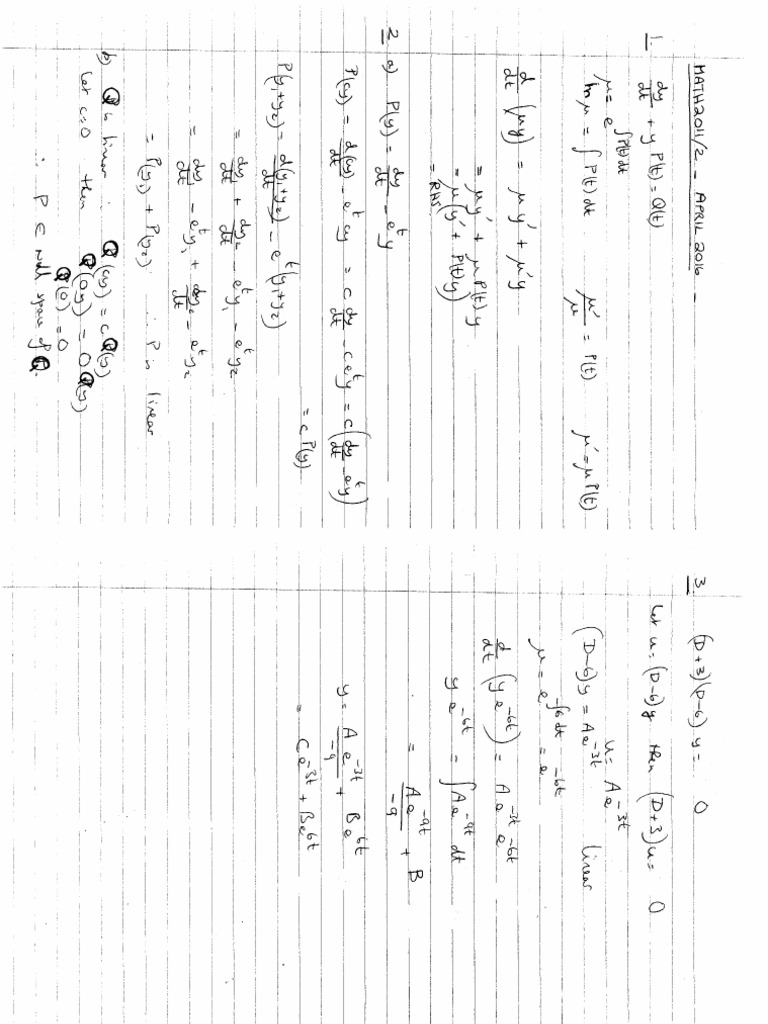 MATH2011/2 - APRIL 2016 -
1. dy/dt + y P(t) = Q(t)
μ = e^∫P(t)dt
ln μ = ∫ P(t) dt    μ'/μ = P(t)    μ' = μ P(t)
d/dt (μy) = μ y' + μ' y
= μ y' + μ P(t) y
= μ (y' + P(t) y)
= RHS
2 a) P(y) = dy/dt - e^t y
P(cy) = d(cy)/dt - e^t cy = c dy/dt - c e^t y = c (dy/dt - e^t y)
= c P(y)
P(y₁+y₂) = d(y₁+y₂)/dt - e^t (y₁+y₂)
= dy₁/dt + dy₂/dt - e^t y₁ - e^t y₂
= dy₁/dt - e^t y₁ + dy₂/dt - e^t y₂
= P(y₁) + P(y₂) ∴ P is linear
b) Q is linear ∴ Q(cy) = c Q(y)
Let c=0 then Q(0y) = 0 Q(y)
Q(0) = 0
∴ P ∈ null space of Q.
3. (D+3)(D-6) y = 0
Let u = (D-6)y then (D+3)u = 0
u = A e^-3t
(D-6)y = A e^-3t linear
μ = e^-∫6dt = e^-6t
d/dt (y e^-6t) = A e^-3t e^-6t
y e^-6t = ∫ A e^-9t dt
= A e^-9t / -9 + B
y = A e^-3t / -9 + B e^6t
= C e^-3t + B e^6t